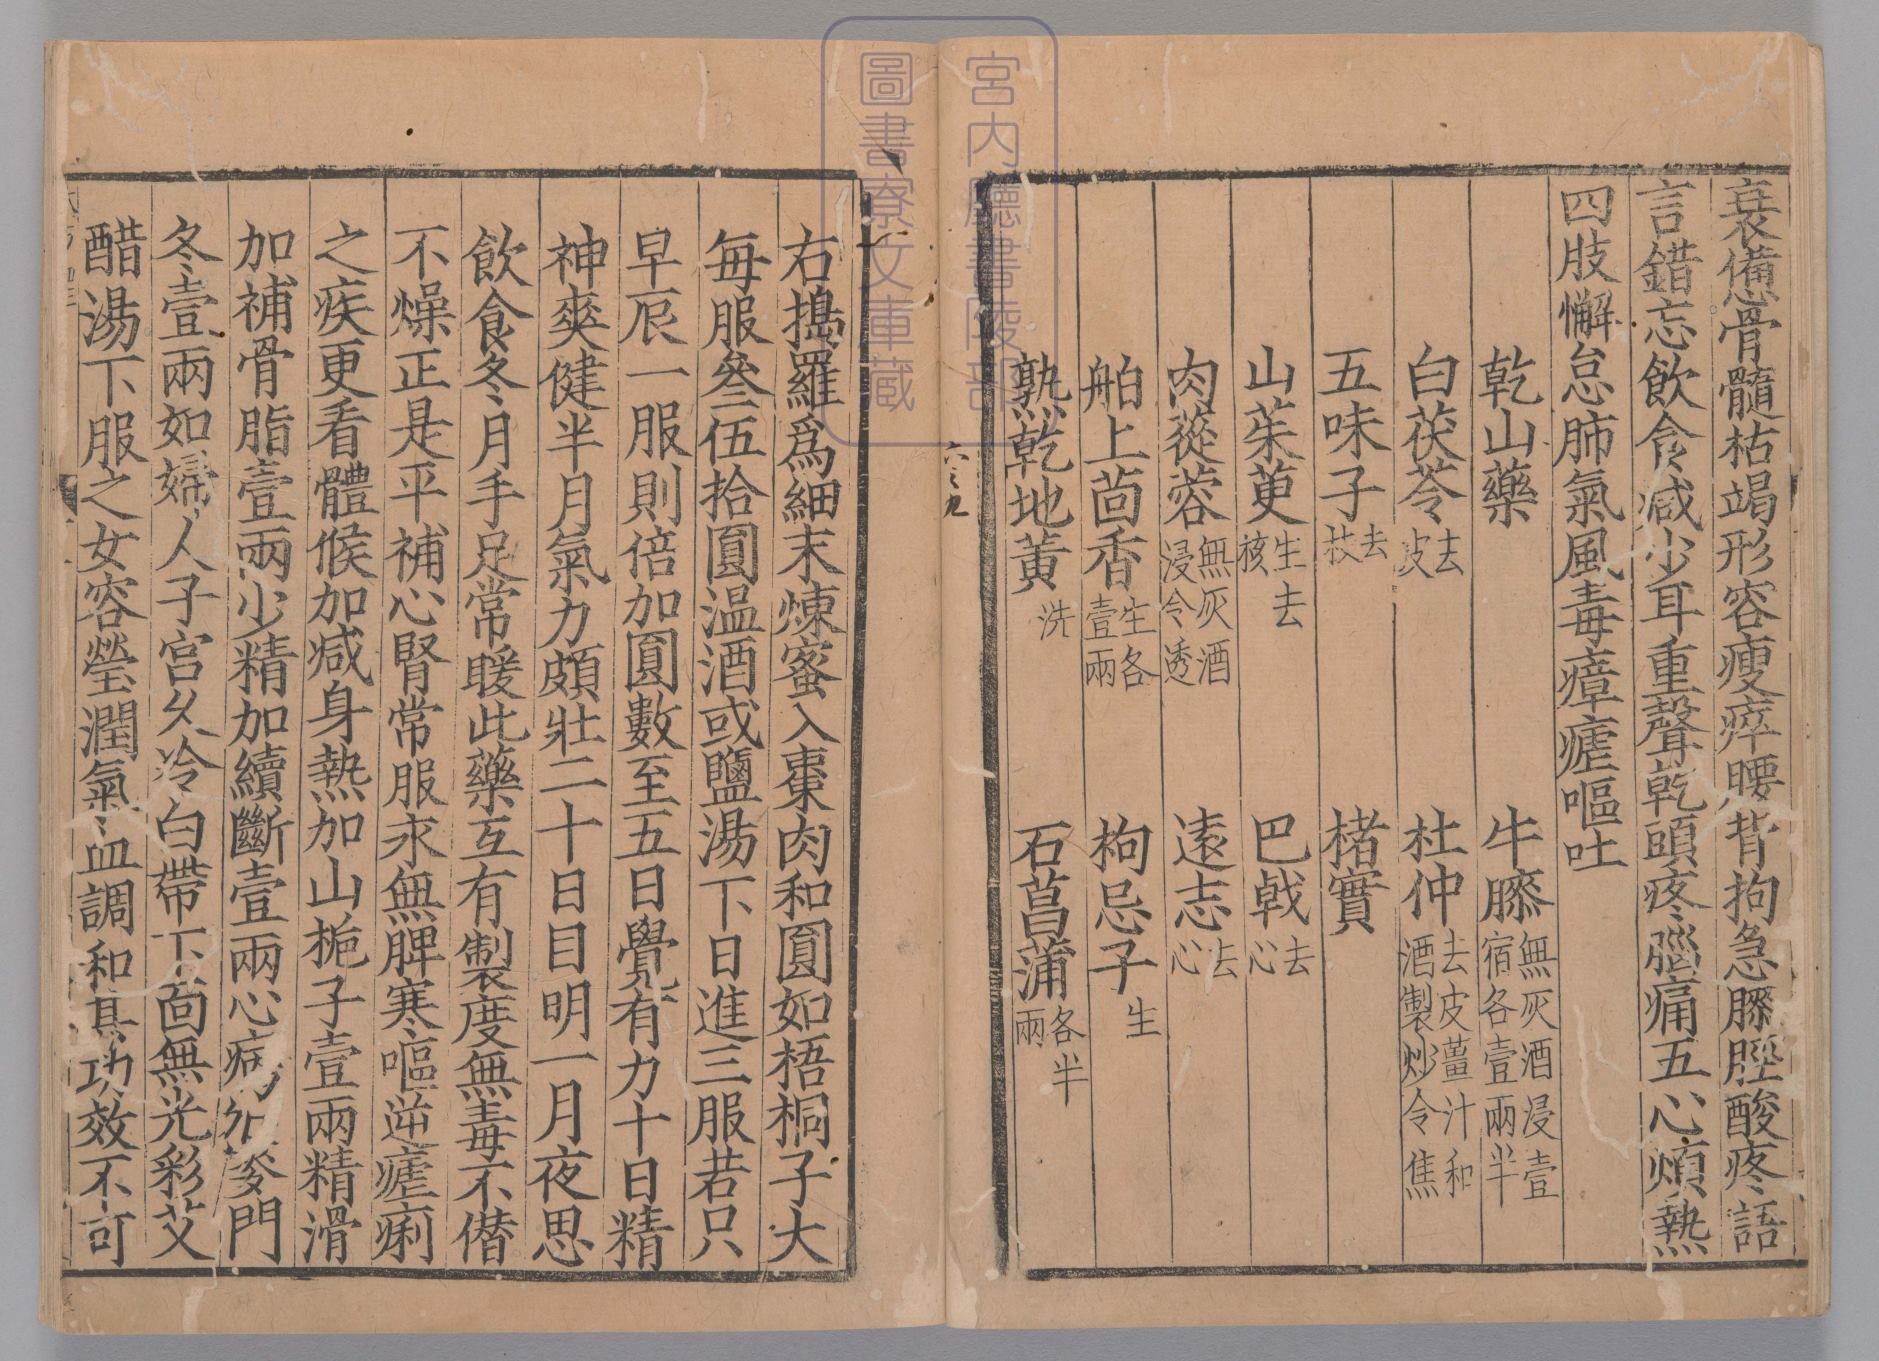 衰憊骨髓枯竭形容瘦瘁腰背拘急膝脛酸疼語
言錯忘飲食減少耳重聲乾頭疼腦痛五心煩熱
四肢懈怠肺氣風毒瘴瘧嘔吐
乾山藥 牛膝無灰酒浸壹宿各壹兩半
白茯苓去皮 杜仲去皮薑汁和酒製炒令焦
五味子去枝 楮實
山茱萸生去核 巴戟去心
肉蓯蓉無灰酒浸令透 遠志去心
舶上茴香生各壹兩 枸忌子生
熟乾地黃洗 石菖蒲各半兩
六之九
右搗羅爲細末煉蜜入棗肉和圓如梧桐子大
每服叄伍拾圓溫酒或鹽湯下日進三服若只
早辰一服則倍加圓數至五日覺有力十日精
神爽健半月氣力頗壯二十日目明一月夜思
飲食冬月手足常暖此藥互有製度無毒不僭
不燥正是平補心腎常服永無脾寒嘔逆瘧痢
之疾更看體候加減身熱加山梔子壹兩精滑
加補骨脂壹兩少精加續斷壹兩心病加麥門
冬壹兩如婦人子宮久冷白帶下面無光彩艾
醋湯下服之女容瑩潤氣血調和其功效不可
宮内廳書陵部
圖書寮文庫藏